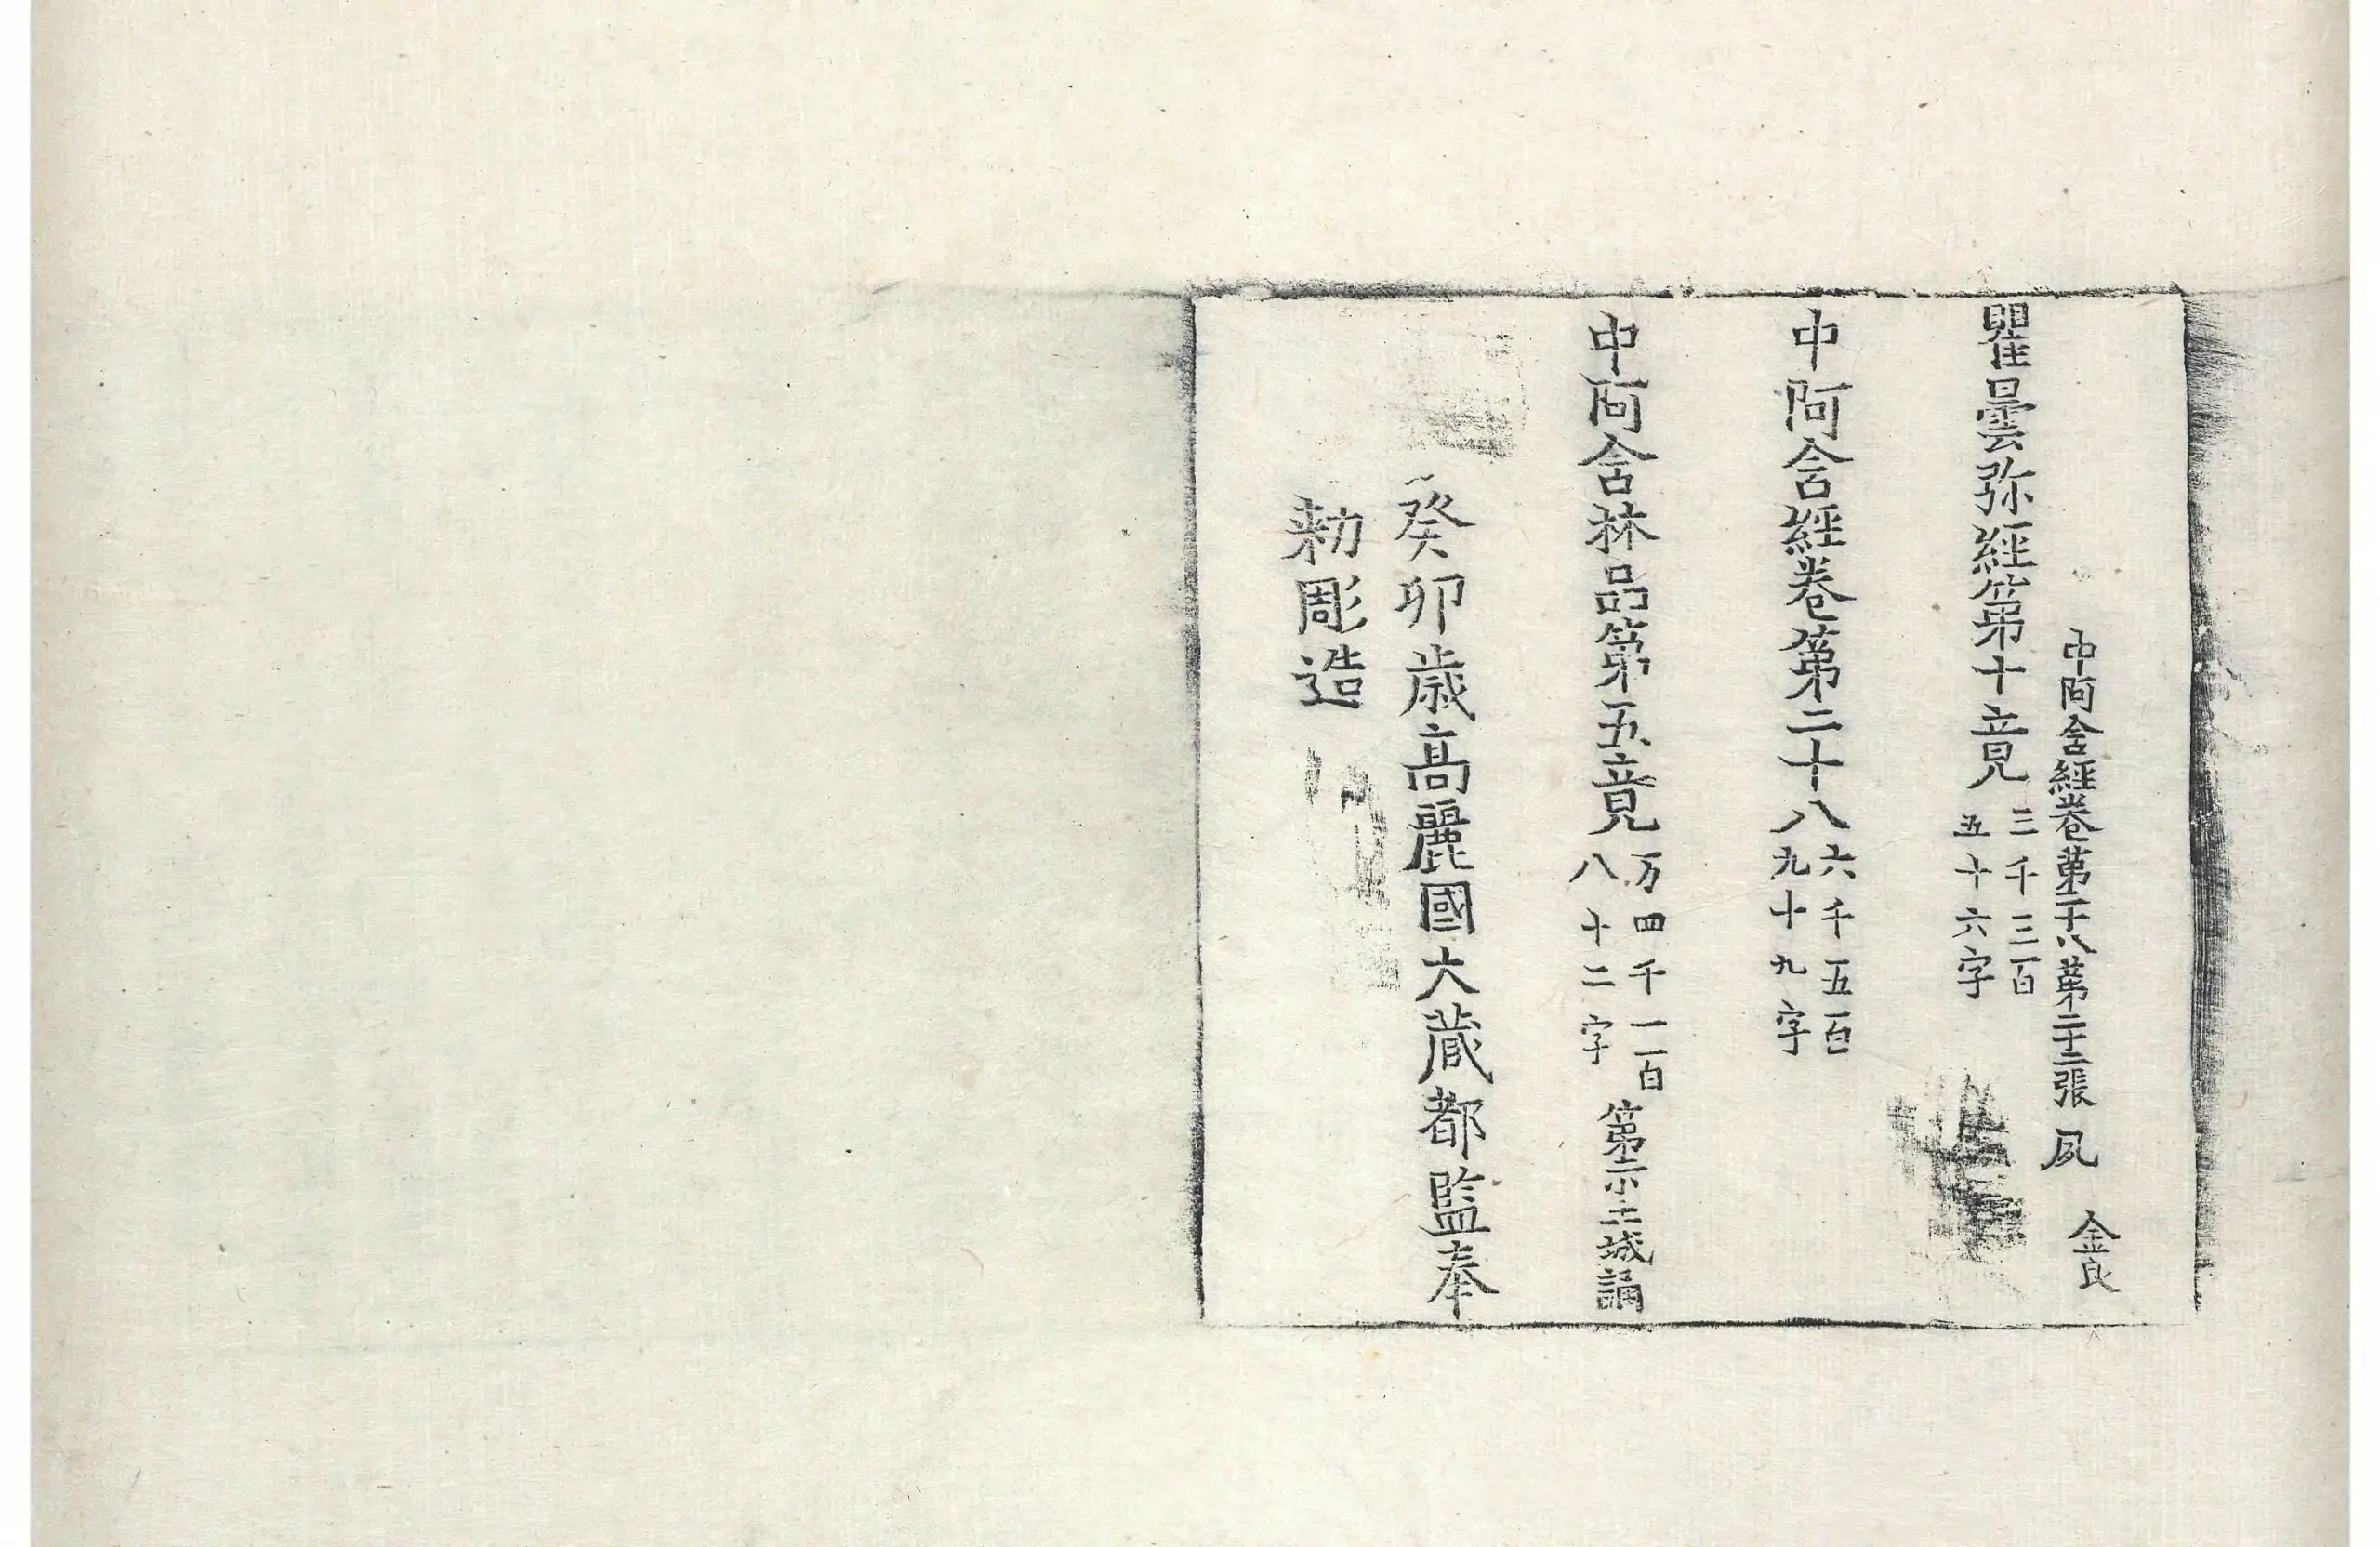 中阿含經卷第二十八第二十二張 夙 金良
瞿曇弥經第十竟 三千三百五十六字
中阿含經卷第二十八 六千五百九十九字
中阿含林品第五竟 万四千一百八十二字 第二小土城誦
癸卯歲高麗國大藏都監奉
勑彫造